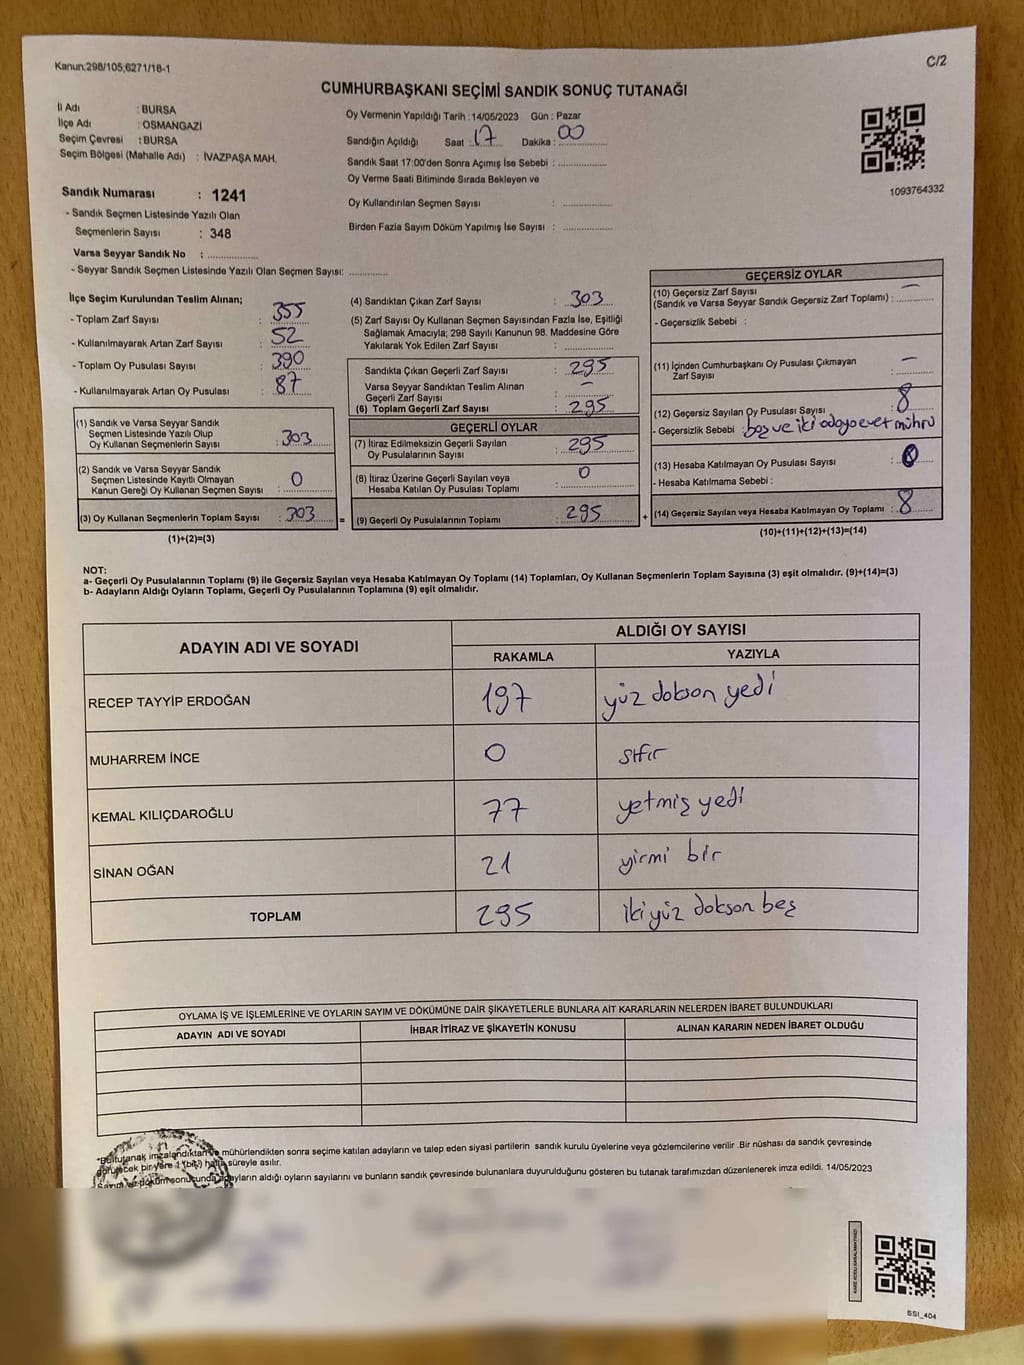 Kanun;298/105;6271/18-1
C/2
CUMHURBAŞKANI SEÇİMİ SANDIK SONUÇ TUTANAĞI
İl Adı : BURSA
İlçe Adı : OSMANGAZİ
Seçim Çevresi : BURSA
Seçim Bölgesi (Mahalle Adı) : İVAZPAŞA MAH.
Sandık Numarası : 1241
- Sandık Seçmen Listesinde Yazılı Olan
Seçmenlerin Sayısı : 348
Varsa Seyyar Sandık No : ................
- Seyyar Sandık Seçmen Listesinde Yazılı Olan Seçmen Sayısı: ............
Oy Vermenin Yapıldığı Tarih : 14/05/2023 Gün : Pazar
Sandığın Açıldığı Saat 17 Dakika : 00
Sandık Saat 17:00'den Sonra Açımış İse Sebebi : ................
Oy Verme Saati Bitiminde Sırada Bekleyen ve
Oy Kullandırılan Seçmen Sayısı : ................
Birden Fazla Sayım Döküm Yapılmış İse Sayısı : ................
1093764332
İlçe Seçim Kurulundan Teslim Alınan;
- Toplam Zarf Sayısı : 355
- Kullanılmayarak Artan Zarf Sayısı : 52
- Toplam Oy Pusulası Sayısı : 390
- Kullanılmayarak Artan Oy Pusulası : 87
(1) Sandık ve Varsa Seyyar Sandık
Seçmen Listesinde Yazılı Olup
Oy Kullanan Seçmenlerin Sayısı : 303
(2) Sandık ve Varsa Seyyar Sandık
Seçmen Listesinde Kayıtlı Olmayan
Kanun Gereği Oy Kullanan Seçmen Sayısı : 0
(3) Oy Kullanan Seçmenlerin Toplam Sayısı : 303
(1)+(2)=(3)
(4) Sandıktan Çıkan Zarf Sayısı : 303
(5) Zarf Sayısı Oy Kullanan Seçmen Sayısından Fazla İse, Eşitliği
Sağlamak Amacıyla; 298 Sayılı Kanunun 98. Maddesine Göre
Yakılarak Yok Edilen Zarf Sayısı : ................
Sandıkta Çıkan Geçerli Zarf Sayısı : 295
Varsa Seyyar Sandıktan Teslim Alınan
Geçerli Zarf Sayısı : —
(6) Toplam Geçerli Zarf Sayısı : 295
GEÇERLİ OYLAR
(7) İtiraz Edilmeksizin Geçerli Sayılan
Oy Pusulalarının Sayısı : 295
(8) İtiraz Üzerine Geçerli Sayılan veya
Hesaba Katılan Oy Pusulası Toplamı : 0
= (9) Geçerli Oy Pusulalarının Toplamı : 295 +
GEÇERSİZ OYLAR
(10) Geçersiz Zarf Sayısı
(Sandık ve Varsa Seyyar Sandık Geçersiz Zarf Toplamı) : —
- Geçersizlik Sebebi :
(11) İçinden Cumhurbaşkanı Oy Pusulası Çıkmayan
Zarf Sayısı : —
(12) Geçersiz Sayılan Oy Pusulası Sayısı : 8
- Geçersizlik Sebebi : boş ve iki adaya evet mührü
(13) Hesaba Katılmayan Oy Pusulası Sayısı :
- Hesaba Katılmama Sebebi :
(14) Geçersiz Sayılan veya Hesaba Katılmayan Oy Toplamı : 8
(10)+(11)+(12)+(13)=(14)
NOT:
a- Geçerli Oy Pusulalarının Toplamı (9) ile Geçersiz Sayılan veya Hesaba Katılmayan Oy Toplamı (14) Toplamları, Oy Kullanan Seçmenlerin Toplam Sayısına (3) eşit olmalıdır. (9)+(14)=(3)
b- Adayların Aldığı Oyların Toplamı, Geçerli Oy Pusulalarının Toplamına (9) eşit olmalıdır.
ADAYIN ADI VE SOYADI ALDIĞI OY SAYISI
RAKAMLA YAZIYLA
RECEP TAYYİP ERDOĞAN 197 yüz dokson yedi
MUHARREM İNCE 0 sıfır
KEMAL KILIÇDAROĞLU 77 yetmiş yedi
SİNAN OĞAN 21 yirmi bir
TOPLAM 295 iki yüz dokson beş
OYLAMA İŞ VE İŞLEMLERİNE VE OYLARIN SAYIM VE DÖKÜMÜNE DAİR ŞİKAYETLERLE BUNLARA AİT KARARLARIN NELERDEN İBARET BULUNDUKLARI
ADAYIN ADI VE SOYADI İHBAR İTİRAZ VE ŞİKAYETİN KONUSU ALINAN KARARIN NEDEN İBARET OLDUĞU
*Bu tutanak imzalandıktan ve mühürlendikten sonra seçime katılan adayların ve talep eden siyasi partilerin sandık kurulu üyelerine veya gözlemcilerine verilir .Bir nüshası da sandık çevresinde
görülecek bir yere 1 (bir) hafta süreyle asılır.
Sayım ve döküm sonucunda adayların aldığı oyların sayılarını ve bunların sandık çevresinde bulunanlara duyurulduğunu gösteren bu tutanak tarafımızdan düzenlenerek imza edildi. 14/05/2023
SSI_404